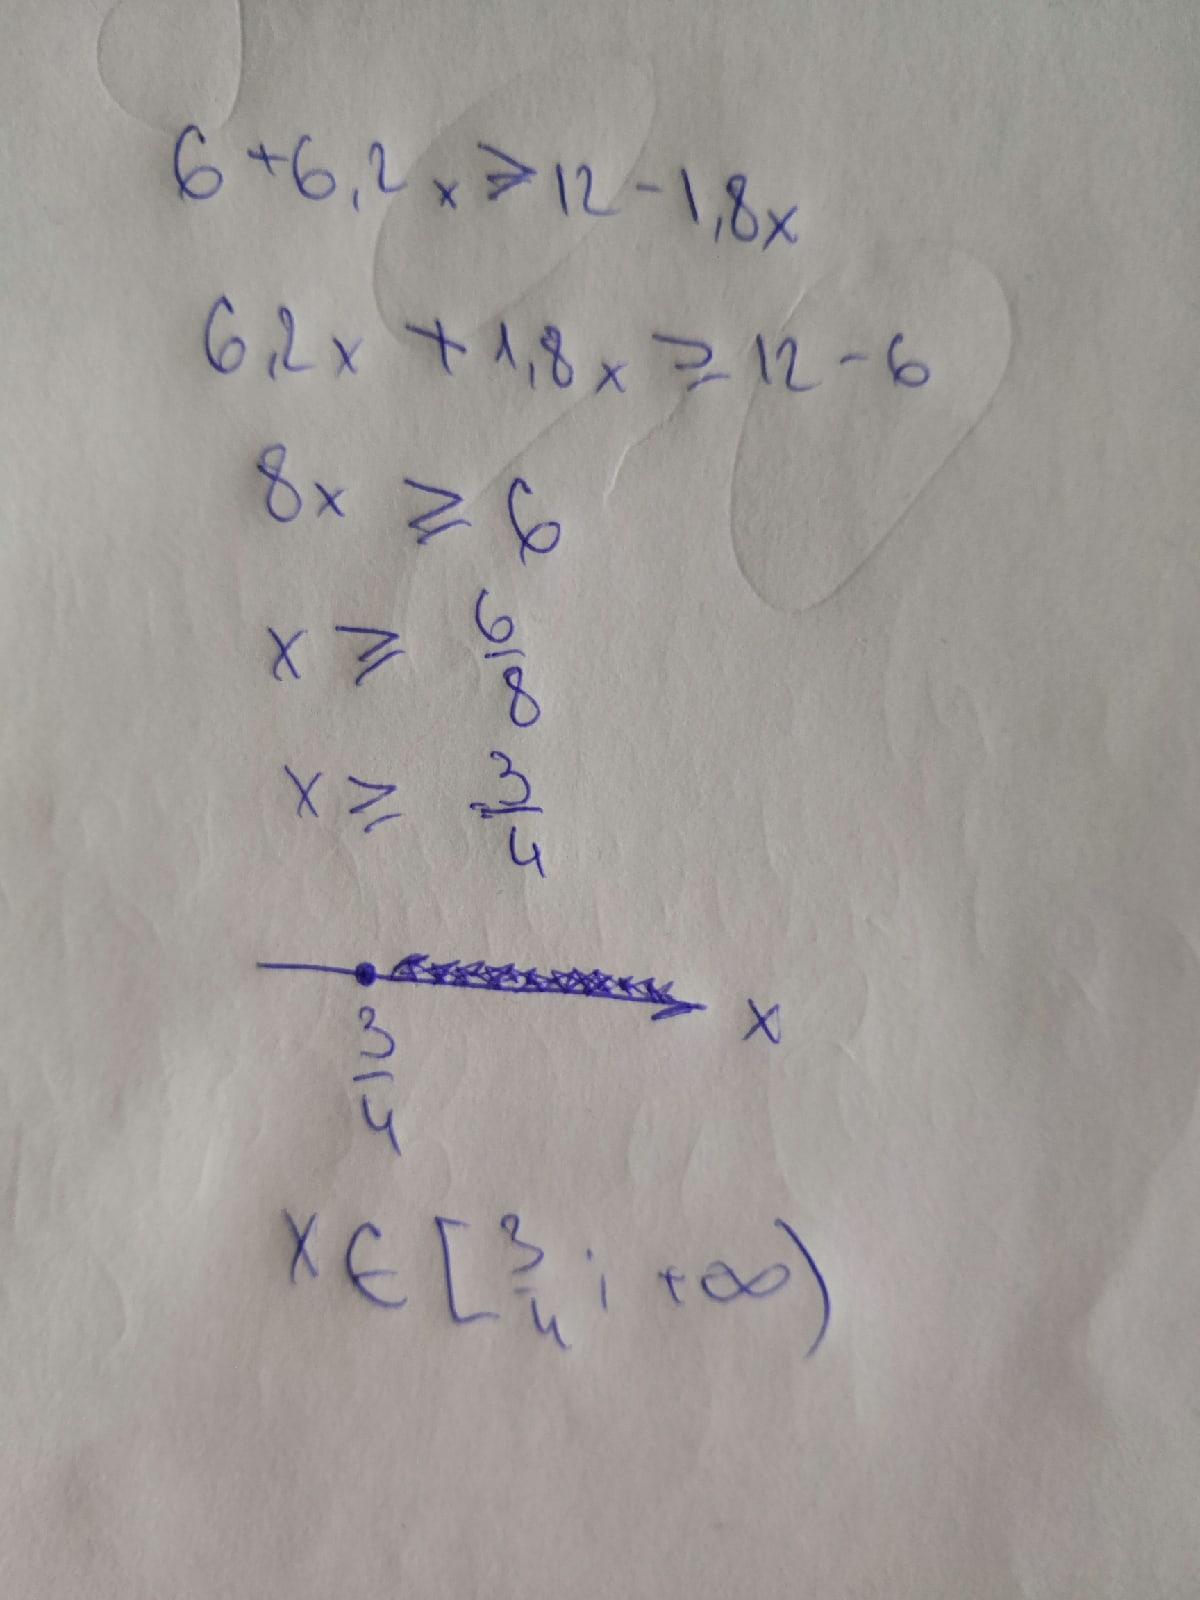 6+6,2x⩾12-1,8x
6,2x+1,8x⩾12-6
8x⩾6
x⩾6/8
x⩾3/4
x
3/4
x∈[3/4;+∞)